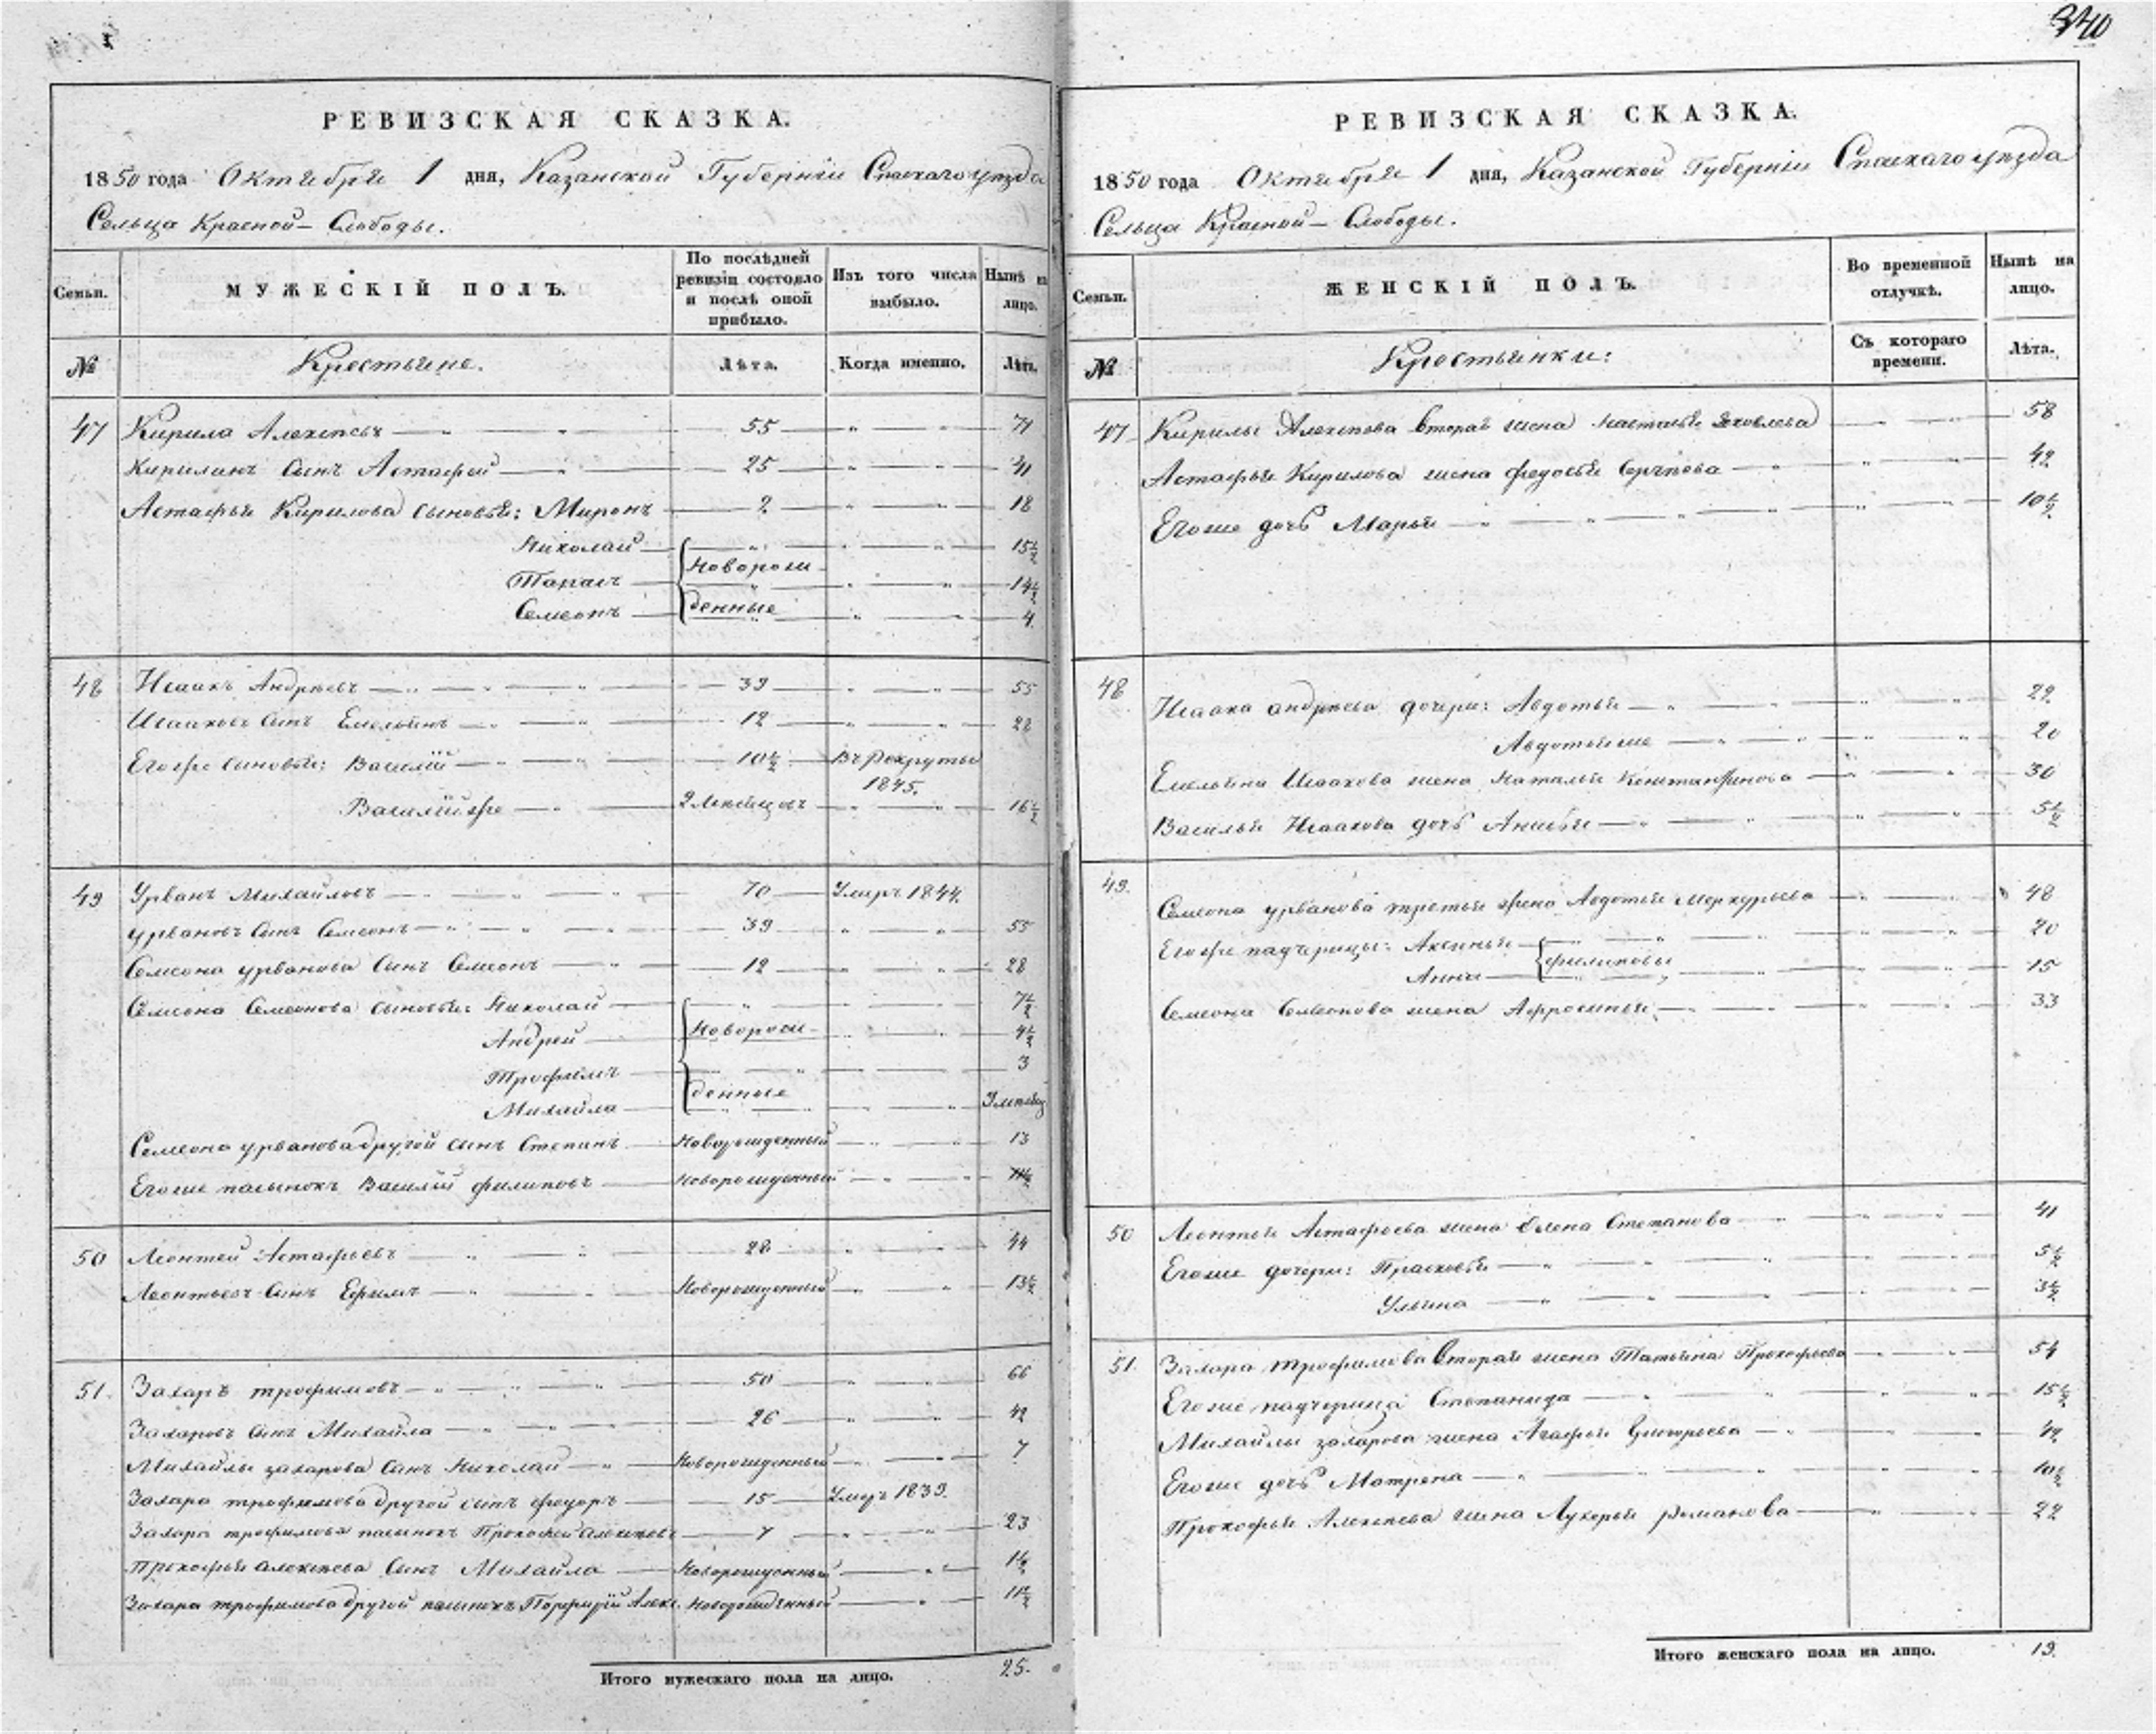 340
РЕВИЗСКАЯ СКАЗКА.
1850 года Октября 1 дня, Казанской Губерніи Спаскаго уѣзда
Сельца Красной – Слободы.
Семьи.
МУЖЕСКІЙ ПОЛЪ.
По послѣдней
ревизіи состояло
и послѣ оной
прибыло.
Изъ того числа
выбыло.
Нынѣ на
лицо.
№
Крестьяне.
Лѣта.
Когда именно.
Лѣта.
47 Кирила Алексѣевъ 55 71
Кирилинъ сынъ Астафей 25 41
Астафья Кирилова сыновья: Миронъ 2 18
Николай 15½
Новорож
Тарасъ 14½
денные
Семеонъ 4
48 Исаакъ Андрѣевъ 39 55
Исааковъ сынъ Емельянъ 12 28
Его же сыновья: Василій 10½ Въ рекруты
1845.
Василій же 2 мѣсяцовъ 16½
49 Урванъ Михайловъ 70 Умеръ 1844.
Урвановъ сынъ Семеонъ 39 55
Семеона Урванова сынъ Семеонъ 12 28
Семеона Семеонова сыновья: Николай 7½
Новорож-
Андрей 4½
Трофимъ 3
денные
Михайла
Семеона Урванова другой сынъ Степанъ Новорожденный 13
Его же пасынокъ Василій Филиповъ Новорожденный
50 Леонтей Астафьевъ 28 44
Леонтьевъ сынъ Ефимъ Новорожденный 13½
51. Захаръ Трофимовъ 50 66
Захаровъ сынъ Михайла 26 42
Михайлы Захарова сынъ Николай Новорожденный 7
Захара Трофимова другой сынъ Федоръ 15 Умеръ 1839.
Захара Трофимова пасынокъ Прокофей Алексѣевъ 7 23
Прокофья Алексѣева сынъ Михайла Новорожденный 1½
Захара Трофимова другой пасынокъ Порфирій Алекс. Новорожденный 11½
Итого мужескаго пола на лицо. 25.
РЕВИЗСКАЯ СКАЗКА.
1850 года Октября 1 дня, Казанской Губерніи Спаскаго уѣзда
Сельца Красной – Слободы.
Семьи.
ЖЕНСКІЙ ПОЛЪ.
Во временной
отлучкѣ.
Нынѣ на
лицо.
№
Крестьянки:
Съ котораго
времени.
Лѣта.
47 Кирилы Алексѣева вторая жена Настасья Яковлева 58
Астафья Кирилова жена Федосья Сергѣева 42
Его же дочь Марья 10½
48 Исаака Андрѣева дочери: Авдотья 22
Авдотья же 20
Емельяна Исаакова жена Наталья Константинова 30
Василья Исаакова дочь Анисья 5½
49. Семеона Урванова третья жена Авдотья Меркурьева 48
Его же падчерицы: Аксинья 20
Филиповы
Анна 15
Семеона Семеонова жена Афросинья 33
50 Леонтья Астафьева жена Елена Степанова 41
Его же дочери: Прасковья 5½
Ульяна 3½
51. Захара Трофимова вторая жена Татьяна Прокофьева 54
Его же падчерица Степанида 15½
Михайлы Захарова жена Агафья Григорьева 42
Его же дочь Матрена 10½
Прокофья Алексѣева жена Лукерья Романова 22
Итого женскаго пола на лицо. 19.